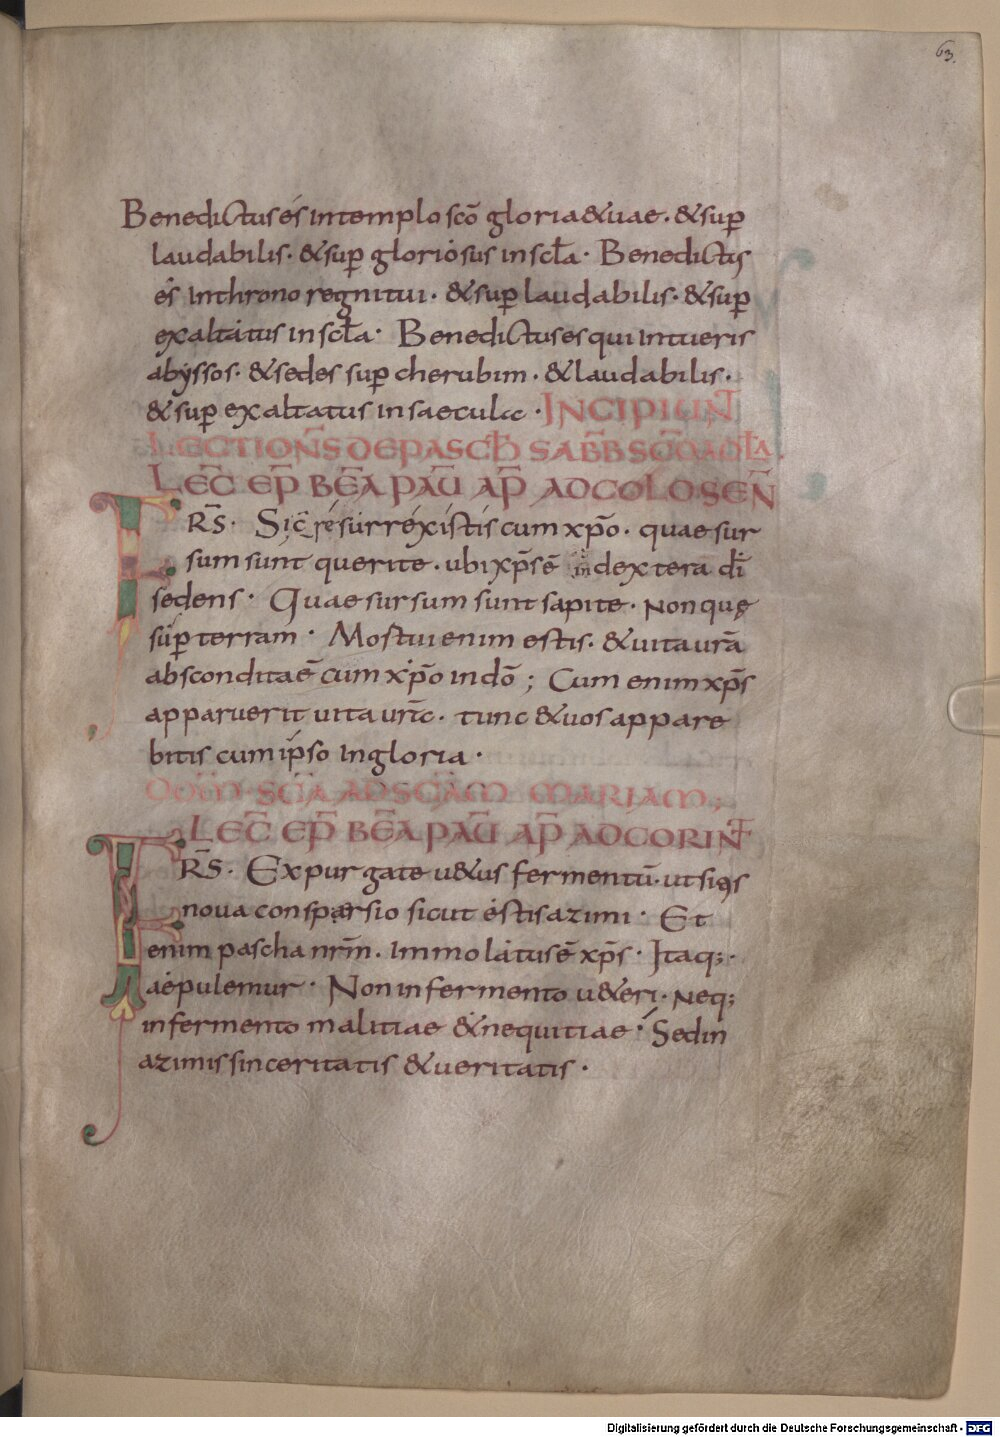 63.
Benedictus es in templo scō gloriae tuae. & sup
laudabilis. & sup gloriosus in scla. Benedictus
es In throno regni tui. & sup laudabilis. & sup
exaltatus in scla. Benedictus es qui Intueris
abyssos. & sedes sup cherubim. & laudabilis.
& sup exaltatus in saecula. INCIPIUNT
LECTIONS DE PASCH SABB SC
LEC EP BEA PAU AP AD COLOSEN
FRS. Sic resurrexistis cum xpo. quae sur
sum sunt querite. ubi xps ē in dextera di
sedens. Quae sursum sunt sapite. Non quę
sup terram. Mostui enim estis. & uita ura
abscondita ē cum xpo in dō; Cum enim xps
apparuerit uita urā. tunc & uos appare
bitis cum ipso In gloria.
DOM SCA AD SCAM MARIAM;
LEC EP BEA PAU AP AD CORINT
FRS. Expurgate u&us fermentū. ut sitis
noua consparsio sicut estis azimi. Et
enim pascha nrm. Immolatus ē xps. Itaq;.
aepulemur. Non in fermento u&eri. Neq;
in fermento malitiae & nequitiae. Sed in
azimis sinceritatis & ueritatis.
Digitalisierung gefördert durch die Deutsche Forschungsgemeinschaft - DFG